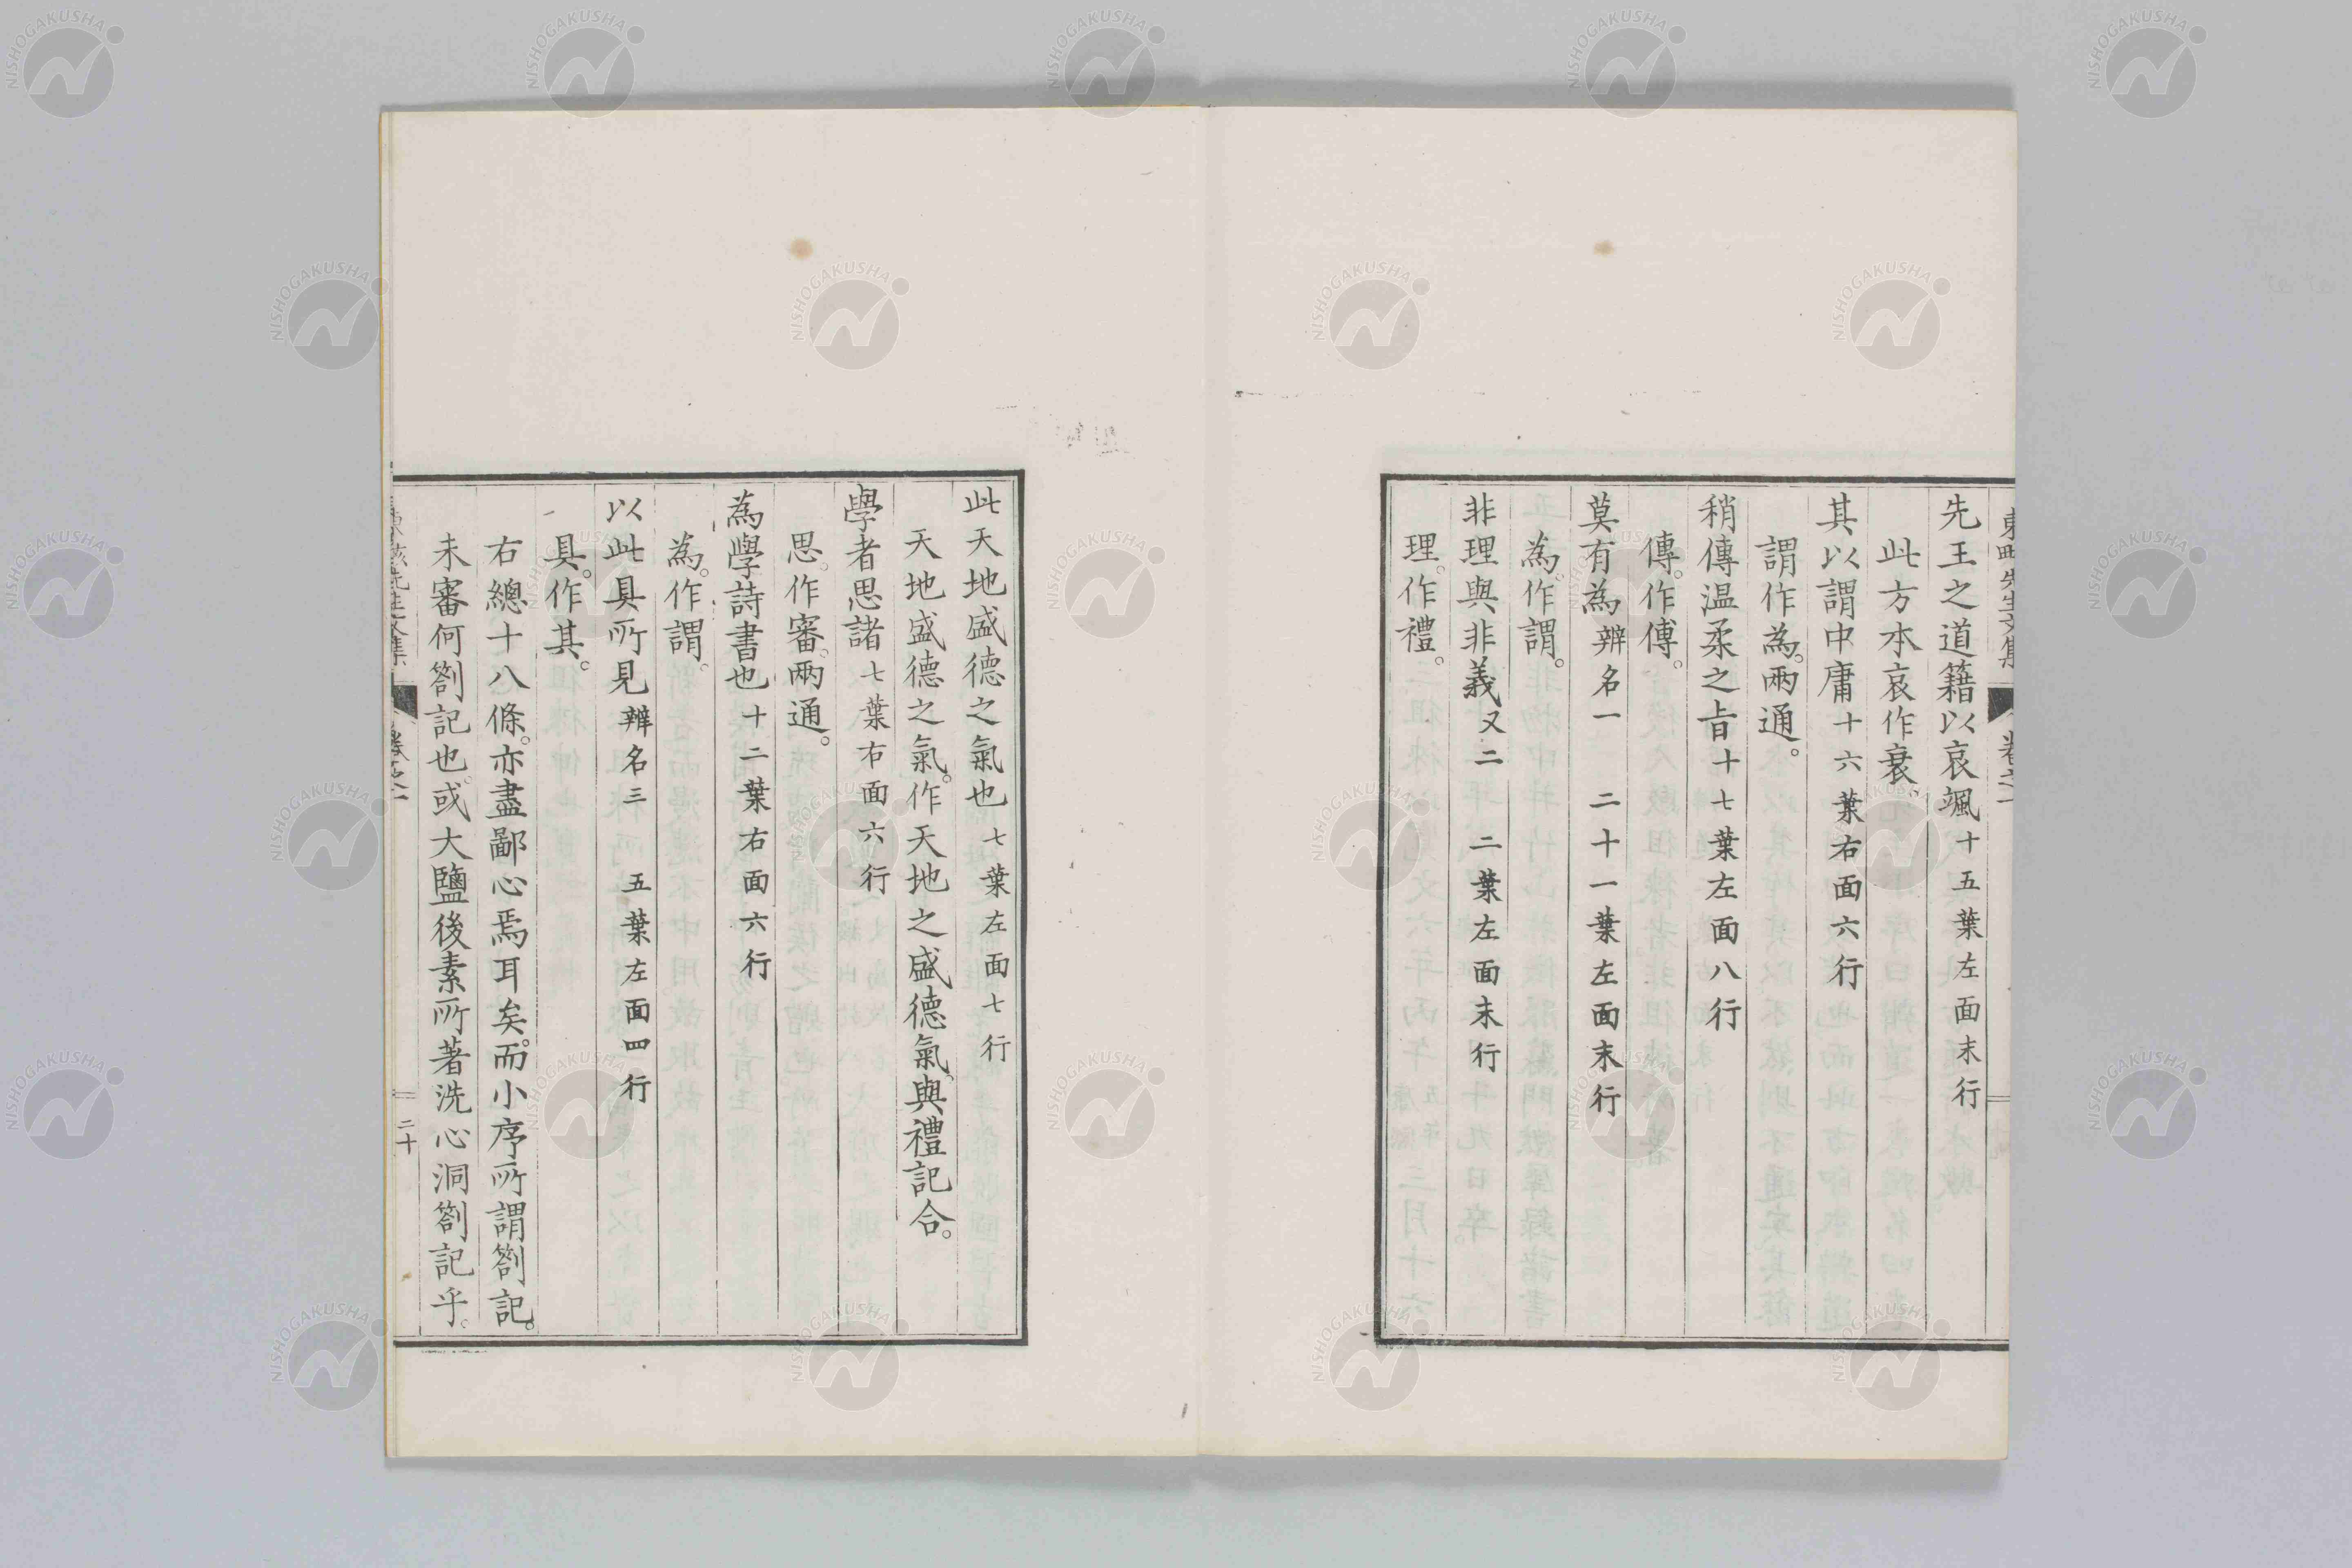 先王之道籍以哀颯十五葉左面末行
此方本哀作衰。
其以謂中庸十六葉右面六行
謂作為。兩通。
稍傳温柔之旨十七葉左面八行
傳。作傅。
莫有為辨名一 二十一葉左面末行
為。作謂。
非理與非義又二 二葉左面末行
理。作禮。
此天地盛德之氣也七葉左面七行
天地盛德之氣。作天地之盛德氣。與禮記合。
學者思諸七葉右面六行
思。作審。兩通。
為學詩書也十二葉右面六行
為。作謂。
以此具所見辨名三 五葉左面四行
具。作其。
右總十八條。亦盡鄙心焉耳矣。而小序所謂劄記。
未審何劄記也。或大鹽後素所著洗心洞劄記乎。
二十